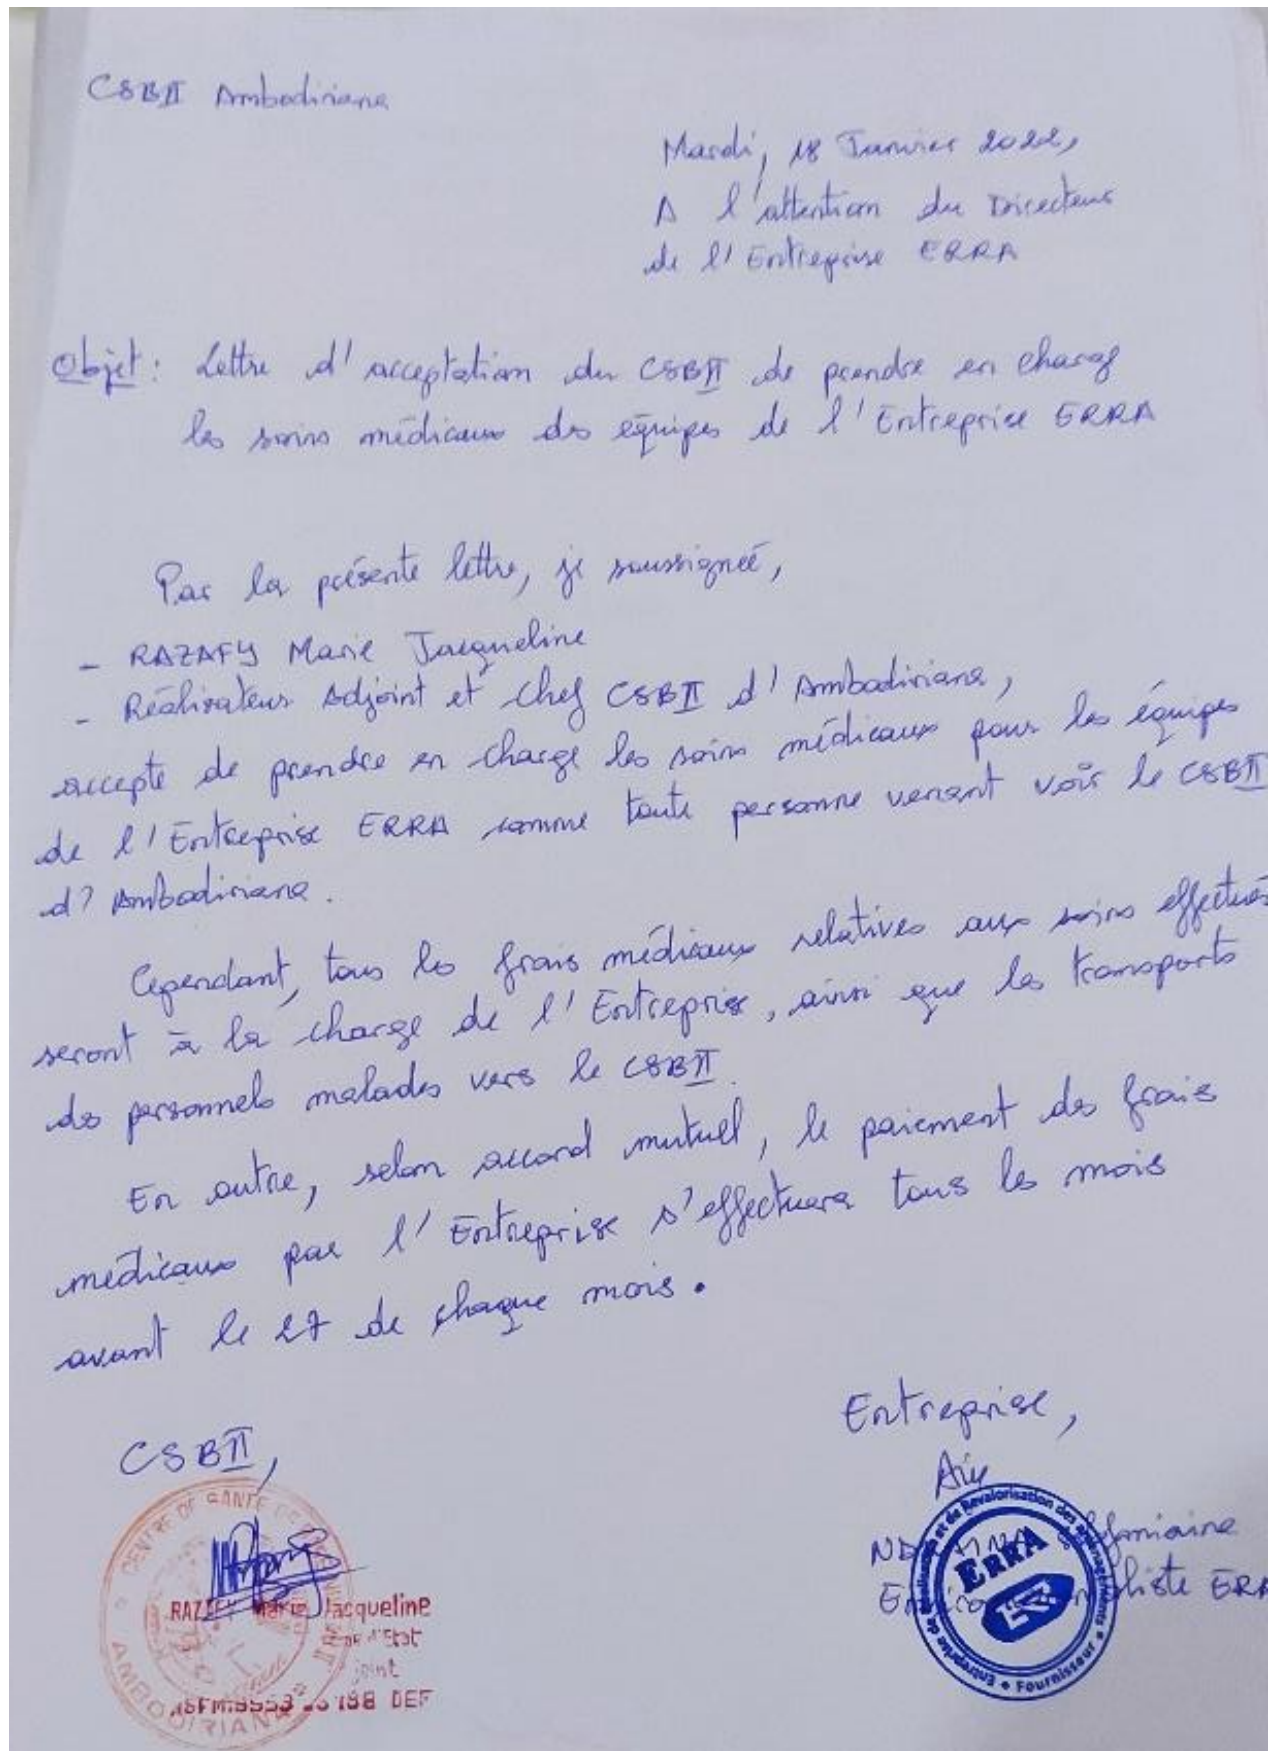 CSBII Ambodiriana
Mardi, 18 Janvier 2022,
A l'attention du Directeur
de l'Entreprise ERRA
Objet : Lettre d'acceptation du CSBII de prendre en charge
les soins médicaux des équipes de l'Entreprise ERRA
Par la présente lettre, je soussignée,
- RAZAFY Marie Jacqueline
- Réalisateur Adjoint et chef CSBII d'Ambodiriana,
accepte de prendre en charge les soins médicaux pour les équipes
de l'Entreprise ERRA comme toute personne venant voir le CSBII
d'Ambodiriana.
Cependant, tous les frais médicaux relatives aux soins effectués
seront à la charge de l'Entreprise, ainsi que les transports
des personnels malades vers le CSBII.
En outre, selon accord mutuel, le paiement des frais
médicaux par l'Entreprise s'effectuera tous les mois
avant le 27 de chaque mois.
CSBII,
Entreprise,
CENTRE DE SANTE DE
AMBODIRIANA
RAZAFY Marie Jacqueline
d'Etat
DEF
Entreprise de Réalisation et de Revalorisation des Aménagements
Fournisseur
ERRA
ERRA